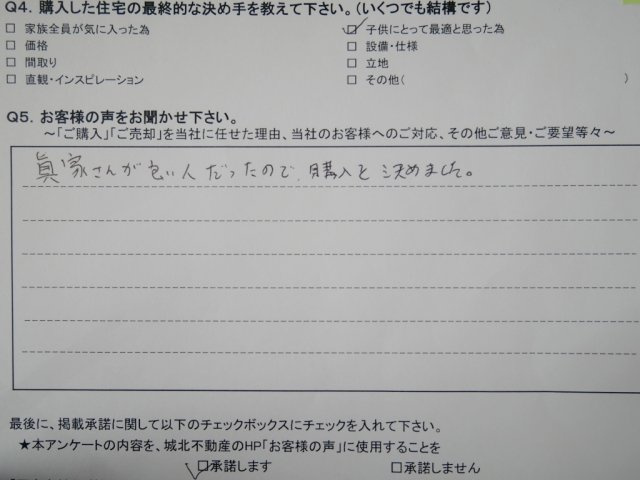 Q4. 購入した住宅の最終的な決め手を教えて下さい。(いくつでも結構です)
□ 家族全員が気に入った為 ☑ 子供にとって最適と思った為
□ 価格 □ 設備・仕様
□ 間取り □ 立地
□ 直観・インスピレーション □ その他( )
Q5. お客様の声をお聞かせ下さい。
~「ご購入」「ご売却」を当社に任せた理由、当社のお客様へのご対応、その他ご意見・ご要望等々~
眞家さんが良い人だったので、購入を決めました。
最後に、掲載承諾に関して以下のチェックボックスにチェックを入れて下さい。
★本アンケートの内容を、城北不動産のHP「お客様の声」に使用することを
☑承諾します □承諾しません